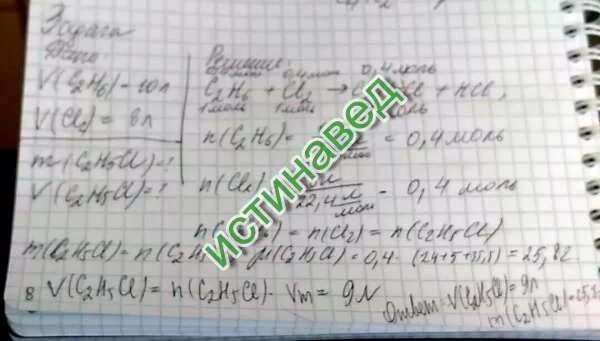 Задача
Дано:
V(C₂H₆) - 10л
V(Cl₂) = 9л
m(C₂H₅Cl) - ?
V(C₂H₅Cl) = ?
Решение:
0,4 моль 0,4 моль
C₂H₆ + Cl₂ → Cl + HCl,
1 моль 1 моль моль
n(C₂H₆) = = 0,4 моль
n(Cl₂) 22,4 л/моль - 0,4 моль
n(C₂ = n(Cl₂) = n(C₂H₅Cl)
m(C₂H₅Cl) = n(C₂H₅ M(C₂H₅Cl) = 0,4 · (24+5+35,5) = 25,82
8 V(C₂H₅Cl) = n(C₂H₅Cl) · Vm = 9л
Ответ: V(C₂H₅Cl) = 9л
m(C₂H₅Cl) =
ИСТИНАВЕД